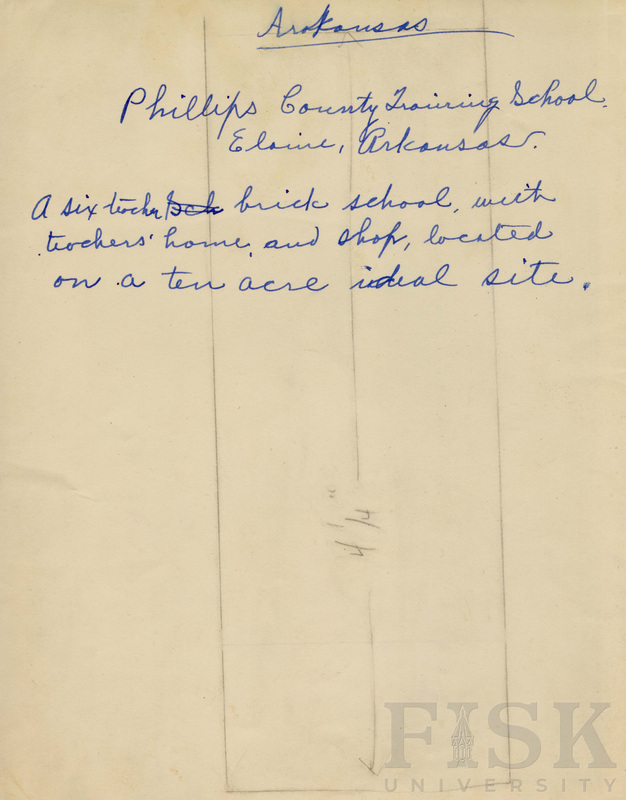 Arkansas
Phillips County Training School.
Elaine, Arkansas.
A six teacher Sch brick school, with
teachers' home, and shop, located
on a ten acre ideal site.
4 1/4"
FISK
UNIVERSITY